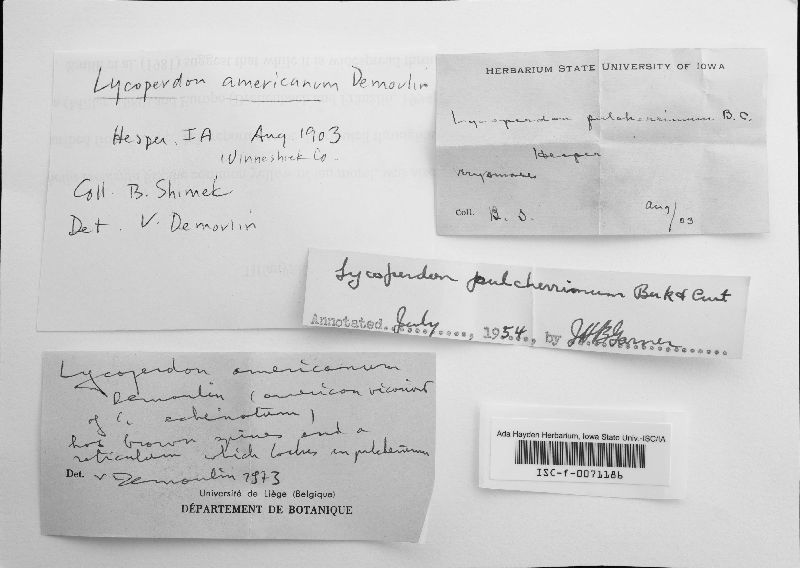 Lycoperdon americanum Demoulin
Hesper, IA Aug 1903
Winneshiek Co.
Coll. B. Shimek
Det. V. Demoulin
HERBARIUM STATE UNIVERSITY OF IOWA
Lycoperdon pulcherrimum B.C.
Hesper
Coll. B. S. Aug/03
Lycoperdon pulcherrimum Berk & Curt
Annotated. July ...., 1954., by
Lycoperdon americanum
Demoulin (american vicariant
of L. echinatum)
has brown spines and a
reticulum which lackes in pulcherrimum
Det. V Demoulin 1973
Université de Liège (Belgique)
DÉPARTEMENT DE BOTANIQUE
Ada Hayden Herbarium, Iowa State Univ.-ISC/IA
ISC-f-0071186